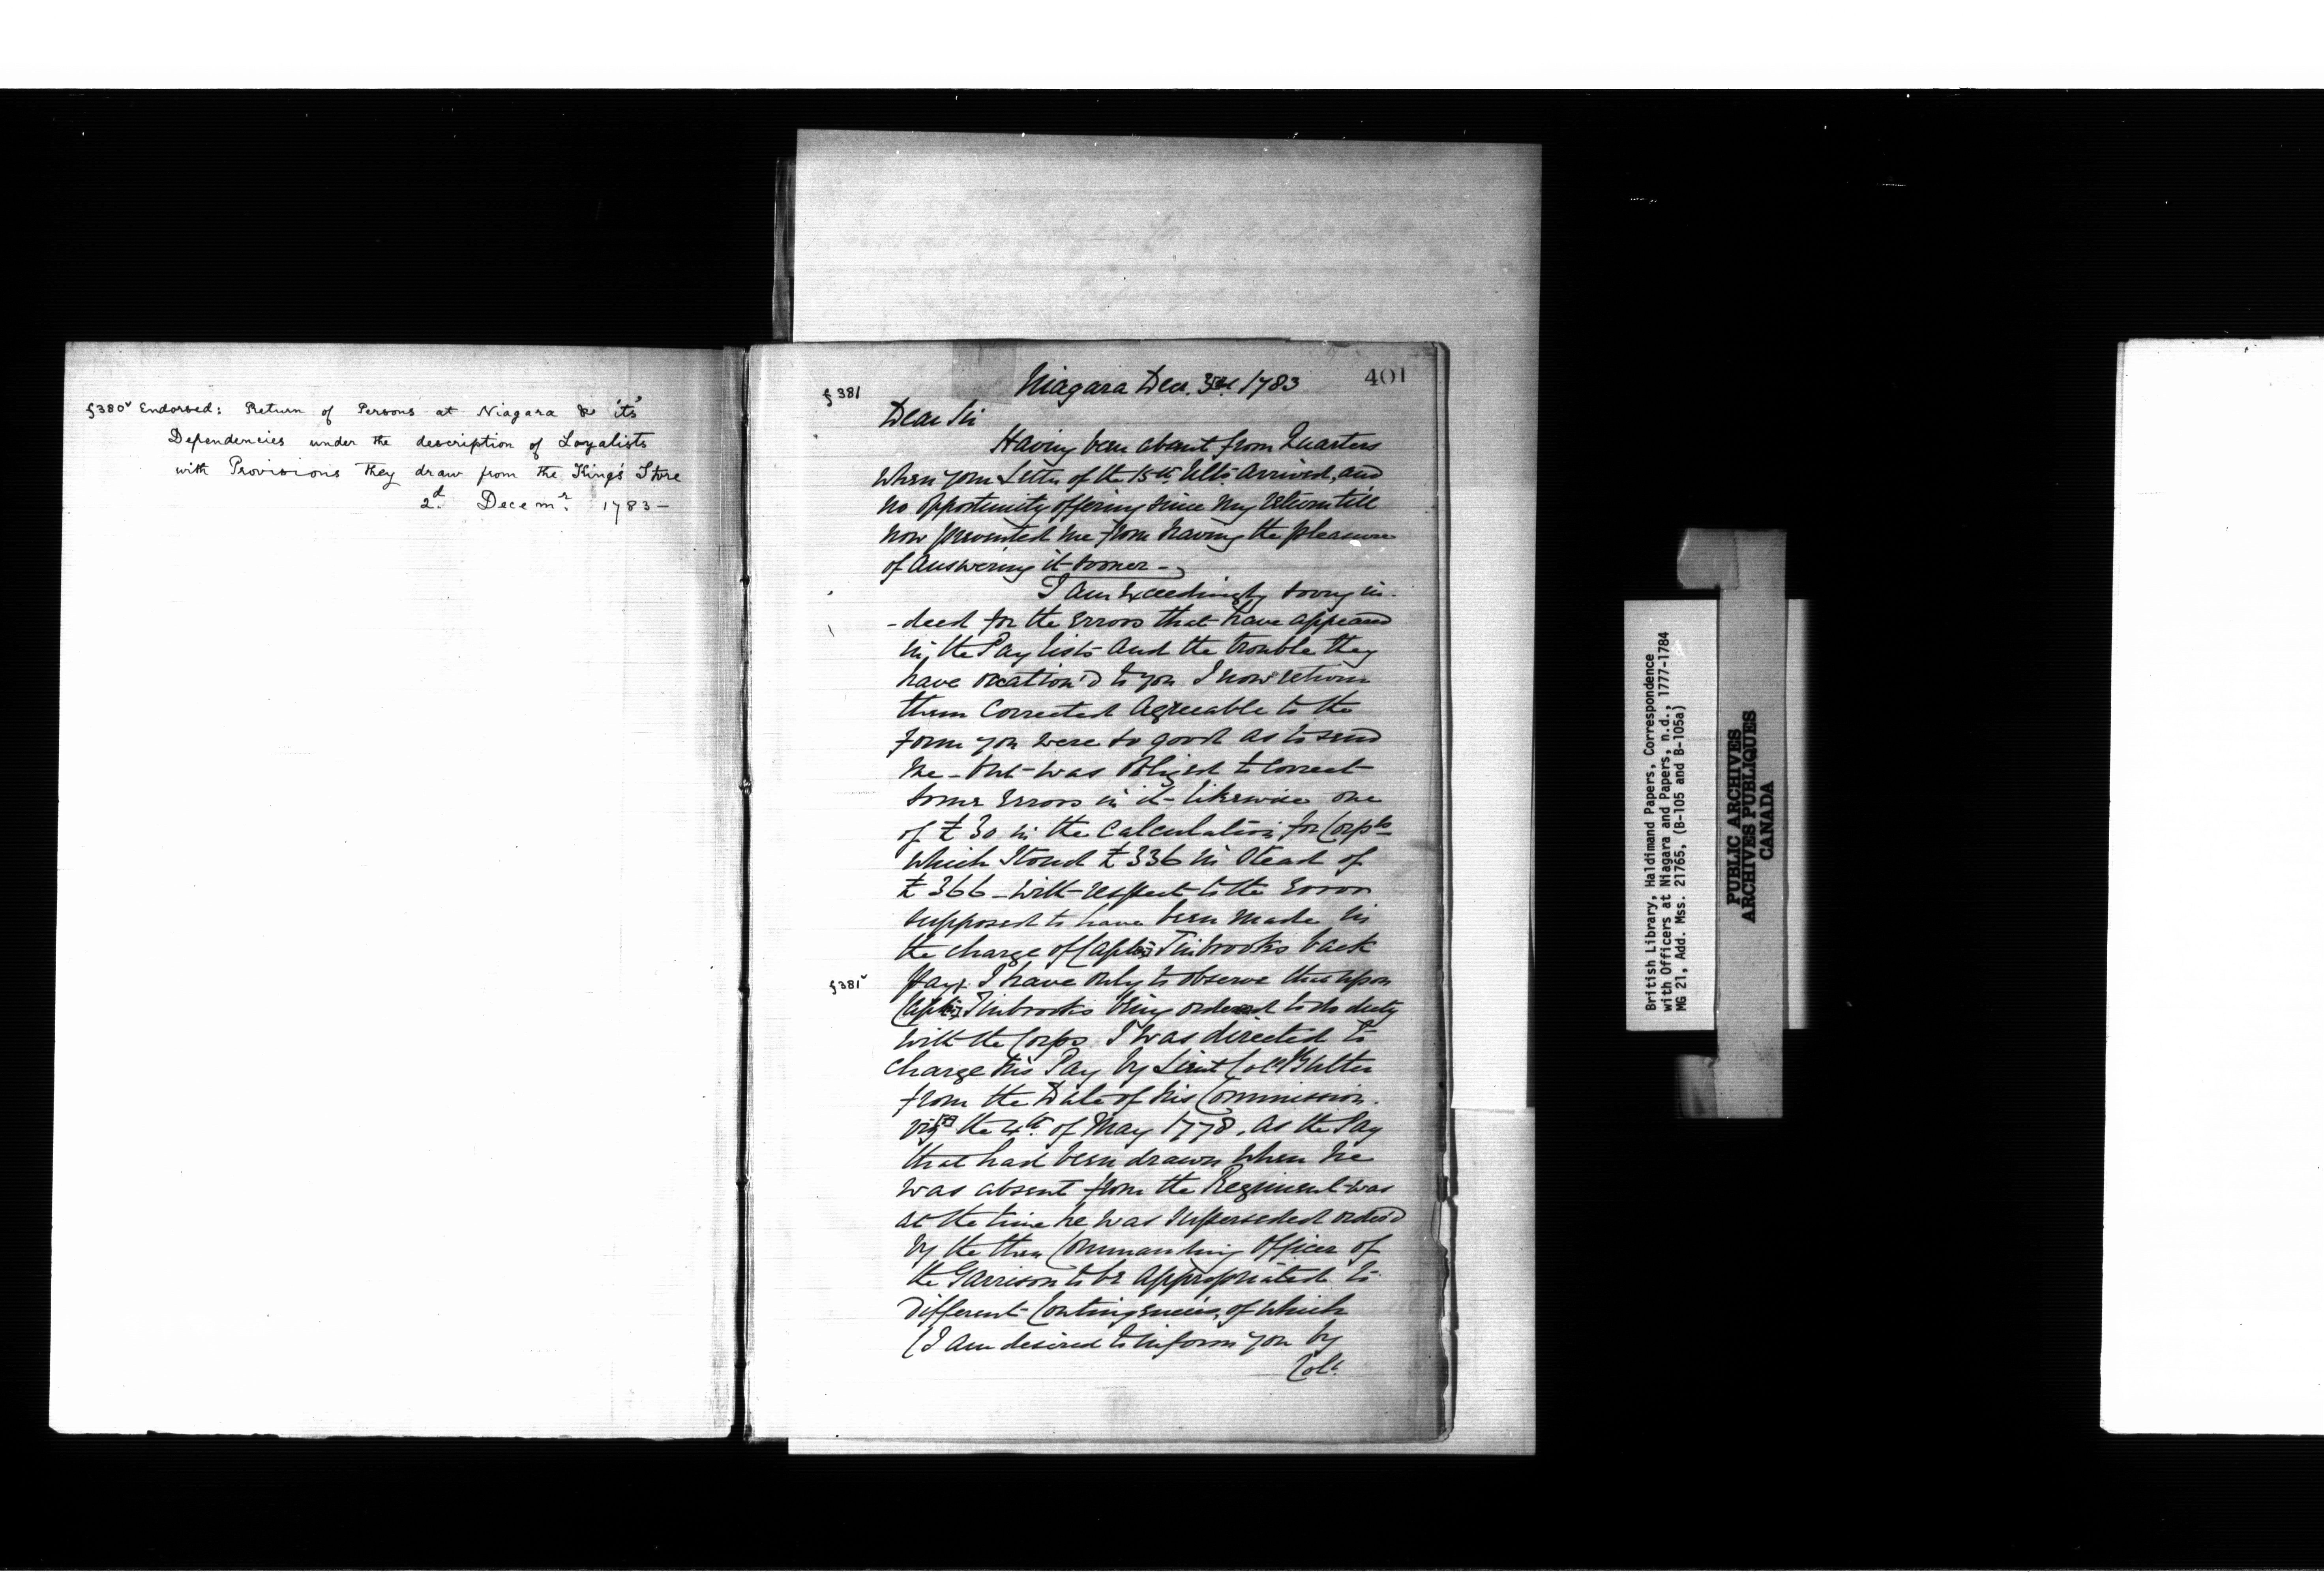 f380v Endorsed: Return of Persons at Niagara & 'its'
Dependencies under the description of Loyalists
with Provisions They draw from the King's Store
2d. Decemr. 1783–
401
f381
Niagara Decr. 3rd. 1783
Dear Sir
Having been absent from Quarters
when your Letter of the 15th. Ulto. Arrived, and
no opportunity offering since my return till
now prevented me from having the pleasure
of Answering it sooner –
I am Exceedingly sorry in-
-deed for the Errors that have appeared
in the Pay lists and the trouble they
have occation'd to you I now return
them Corrected Agreeable to the
Form you were so good as to send
me – but was obliged to correct
some Errors in it – likewise one
of £30 in the Calculation for Corpls
which Stood £336 in Stead of
£366 – with respect to the Error
supposed to have been made in
the charge of Captn Tinbrooks back
f381v
Pay, I have only to observe that upon
Captn Tinbrooks being ordered to do duty
with the Corps I was directed to
charge his Pay by Lieut Coll Butler
from the Date of his Commission.
viz the 4th. of May 1778, as the Pay
that had been drawn when he
was absent from the Regiment was
at the time he was superseded order'd
by the then Commanding Officer of
the Garrison to be appropriated to
different Contingencies, of which
(I am desired to inform you by
Coll.
British Library, Haldimand Papers, Correspondence
with Officers at Niagara and Papers, n.d., 1777-1784
MG 21, Add. Mss. 21765, (B-105 and B-105a)
PUBLIC ARCHIVES
ARCHIVES PUBLIQUES
CANADA